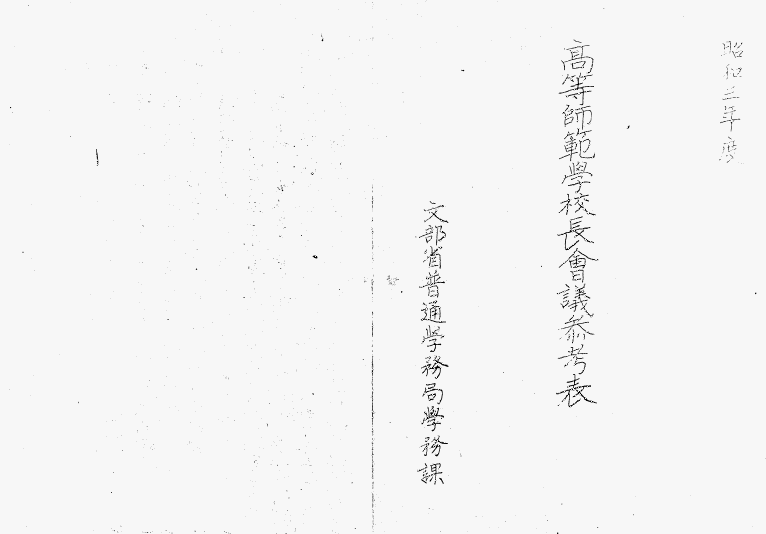 昭和三年度
高等師範學校長會議参考表
文部省普通學務局學務課